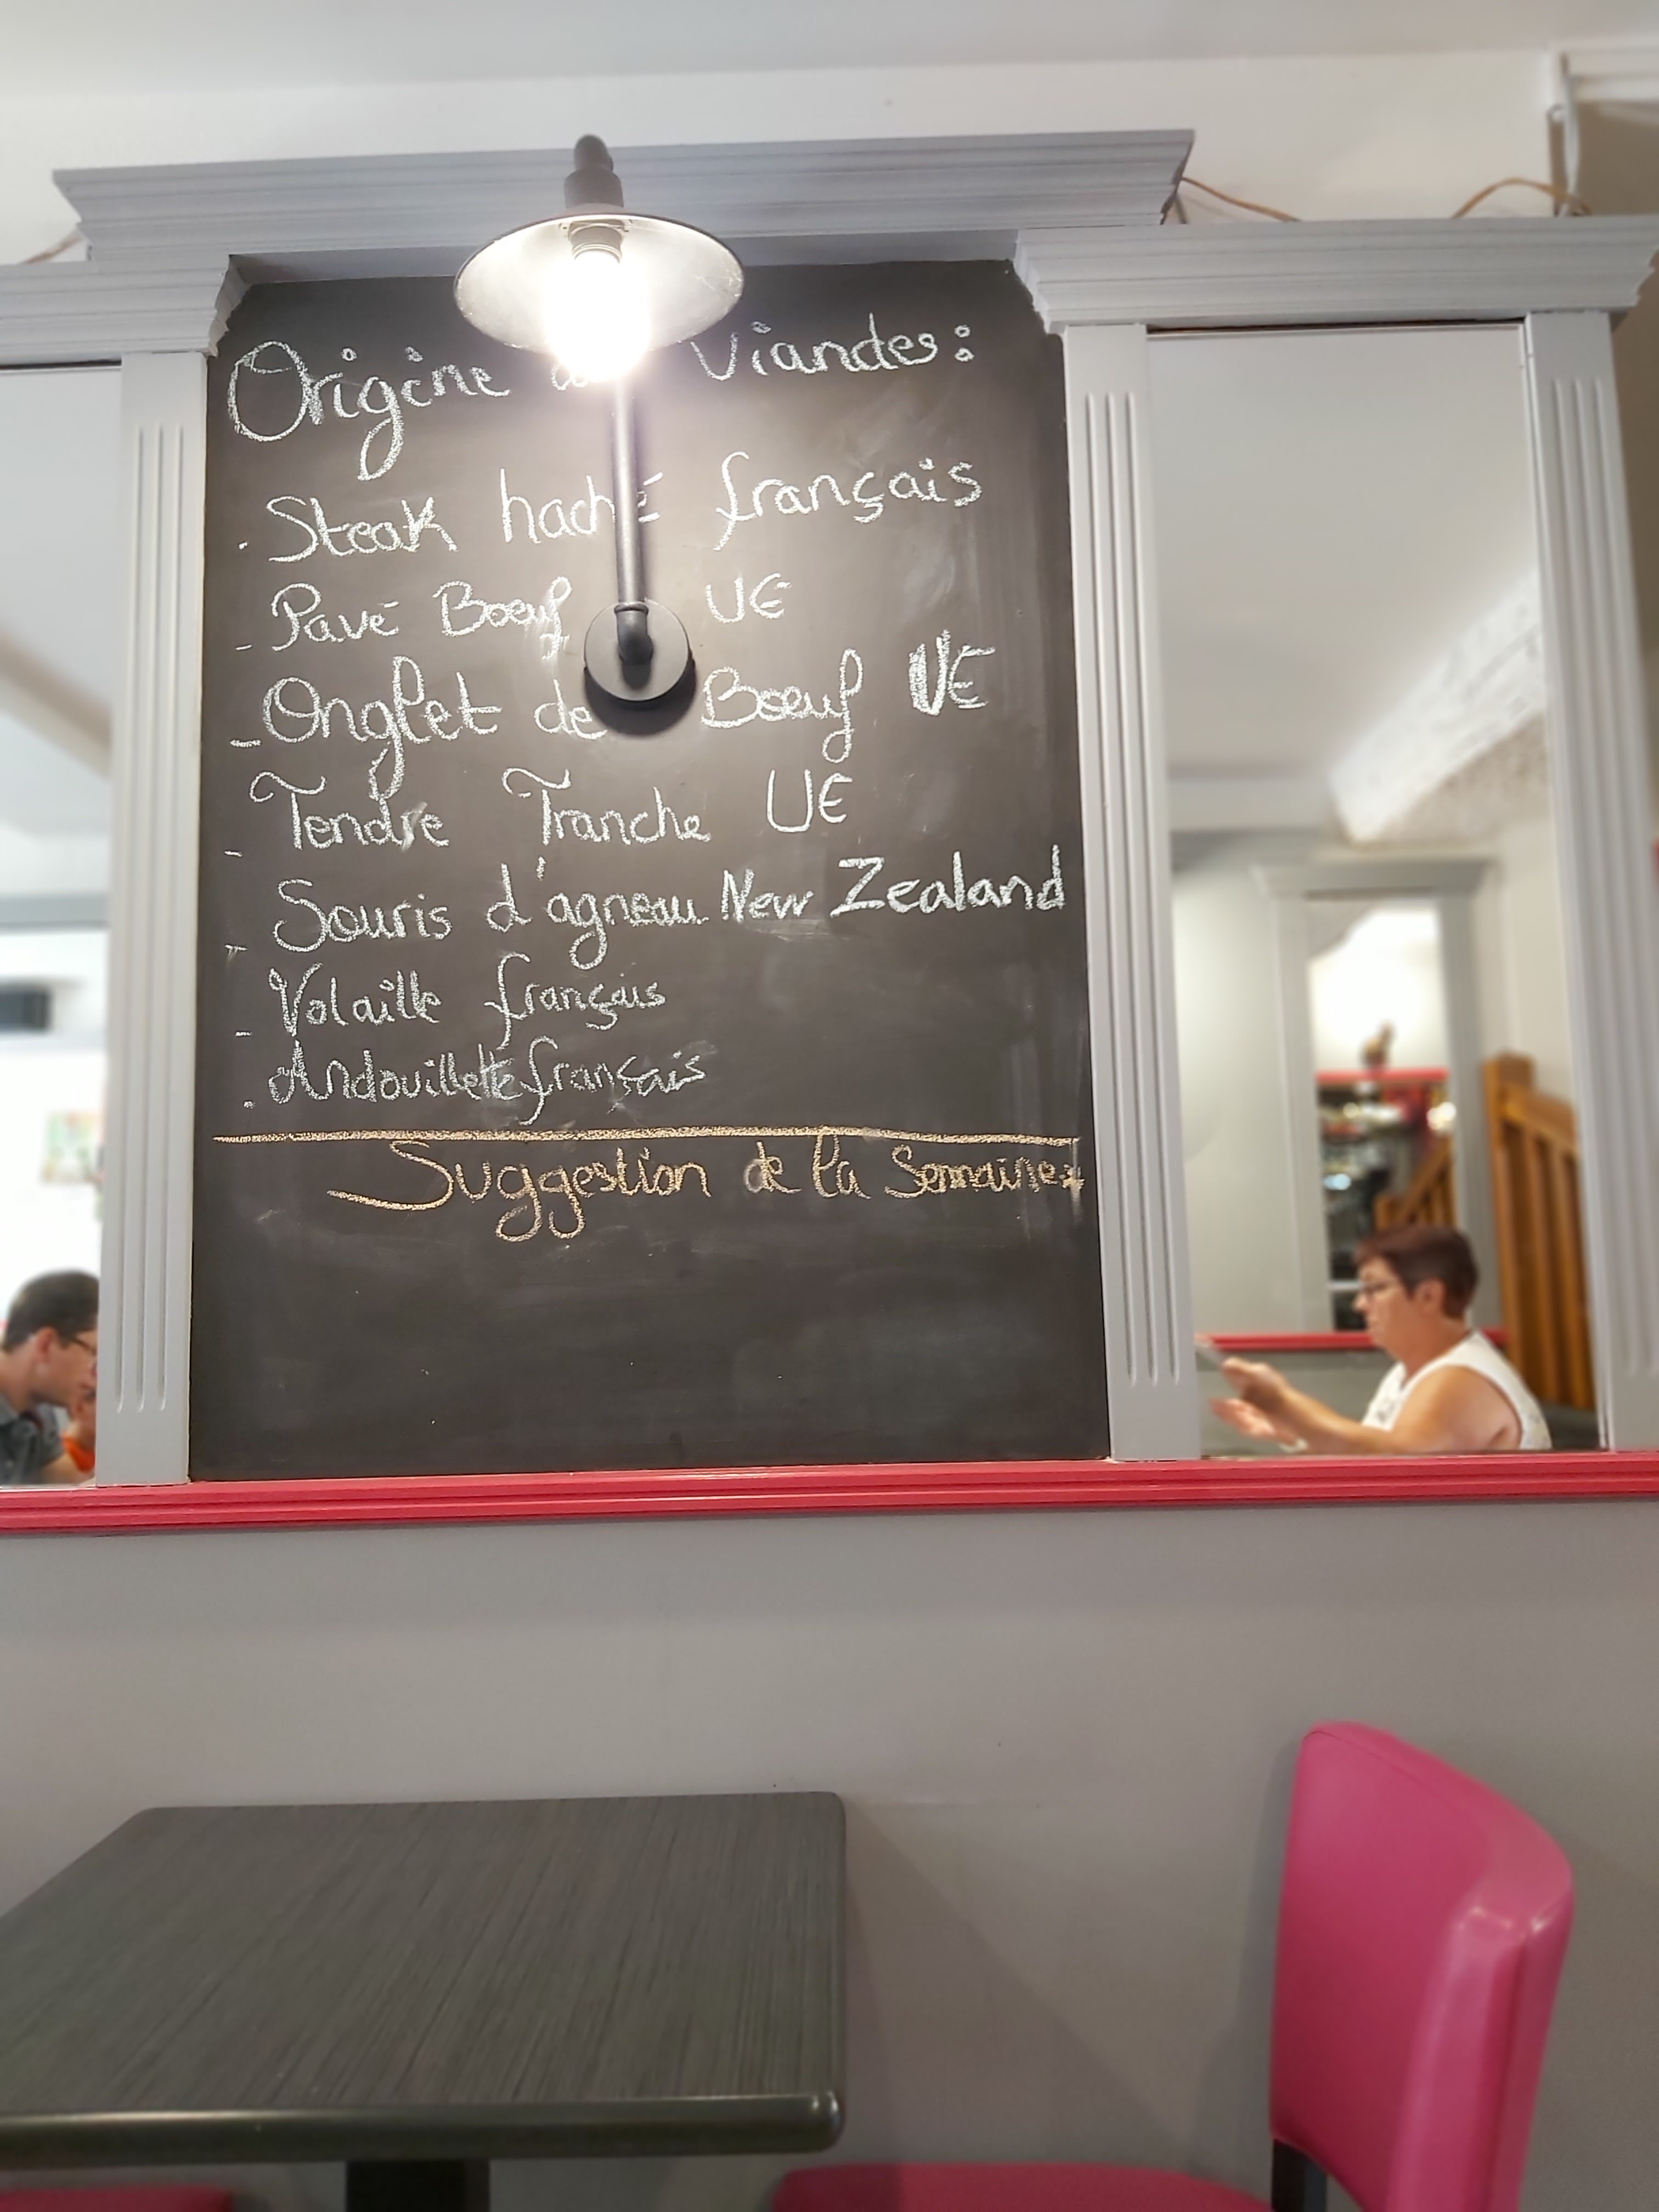 Origine des Viandes:
. Steak haché français
- Pavé Boeuf UE
- Onglet de Boeuf UE
- Tendre Tranche UE
- Souris d'agneau New Zealand
- Volaille français
. Andouillette français
Suggestion de la Semaine: